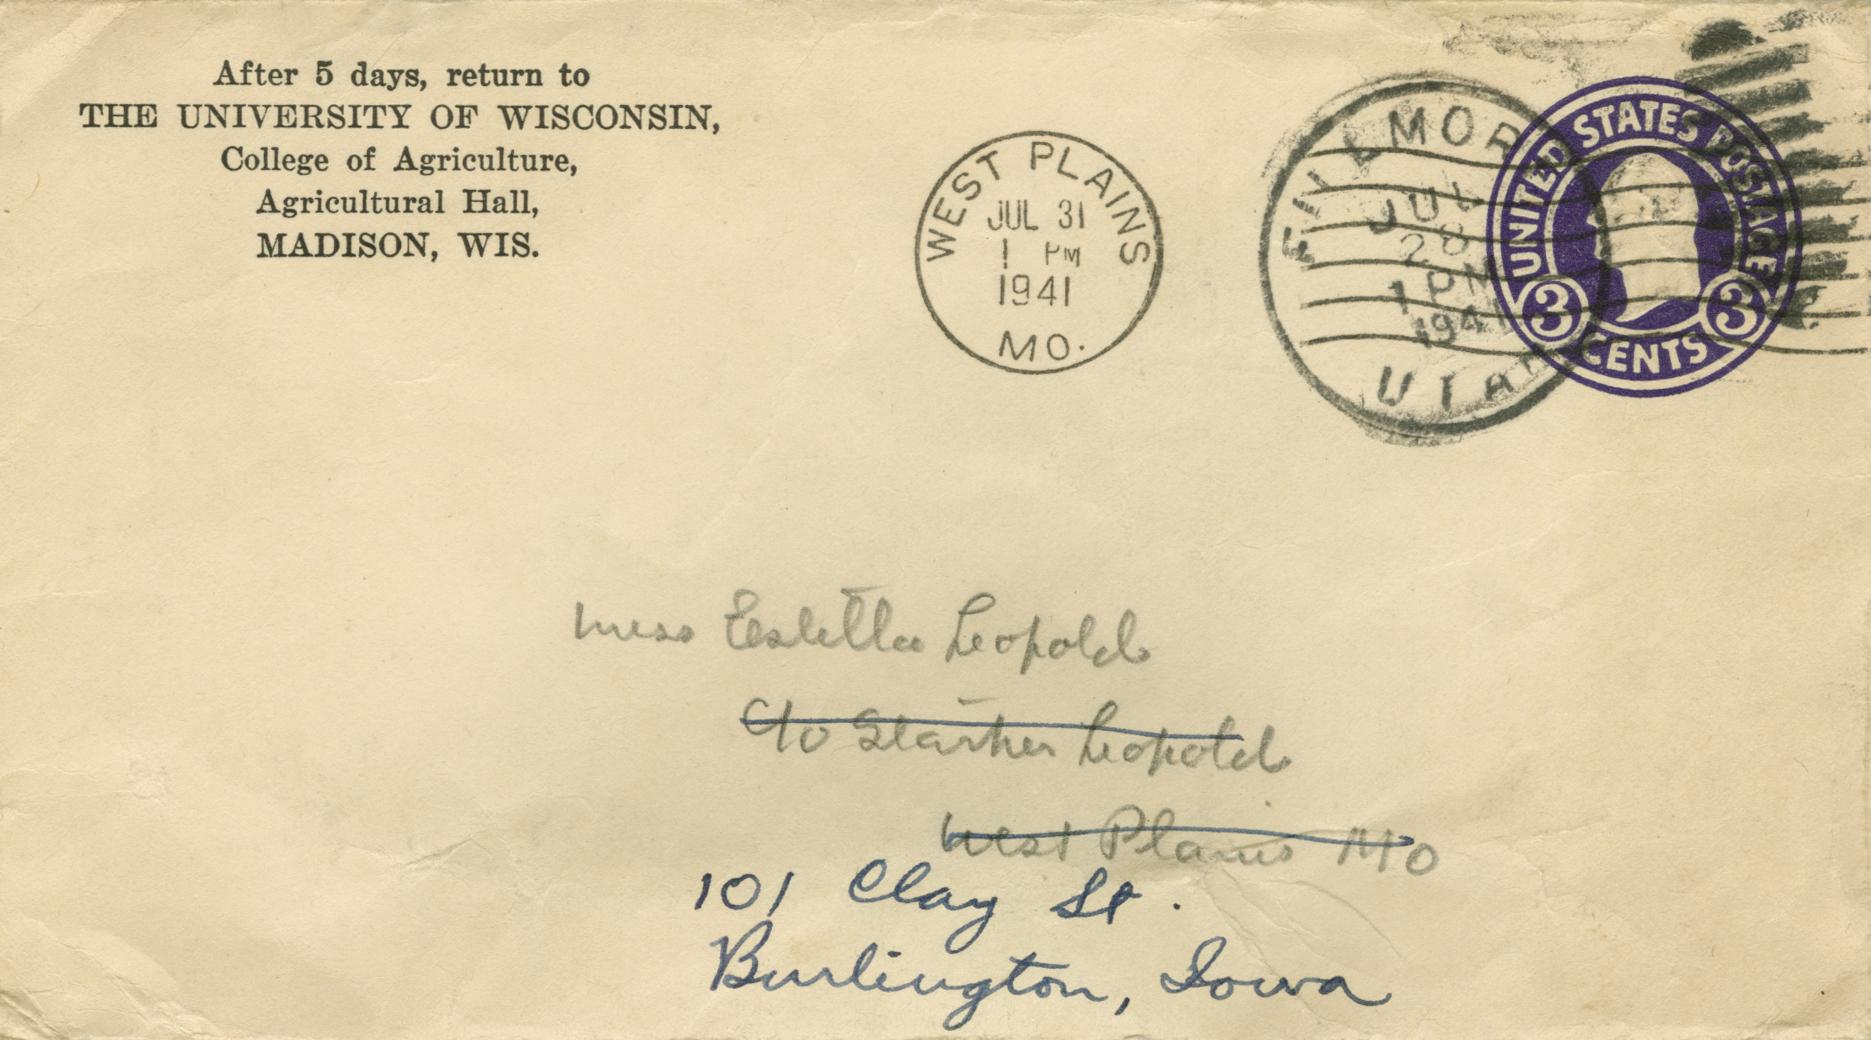 After 5 days, return to
THE UNIVERSITY OF WISCONSIN,
College of Agriculture,
Agricultural Hall,
MADISON, WIS.
WEST PLAINS
JUL 31
1 PM
1941
MO.
FILLMORE
JUL
28
1 PM
1941
UTAH
UNITED STATES POSTAGE
3 3
CENTS
Miss Estella Leopold
c/o Starker Leopold
West Plains MO
101 Clay St.
Burlington, Iowa